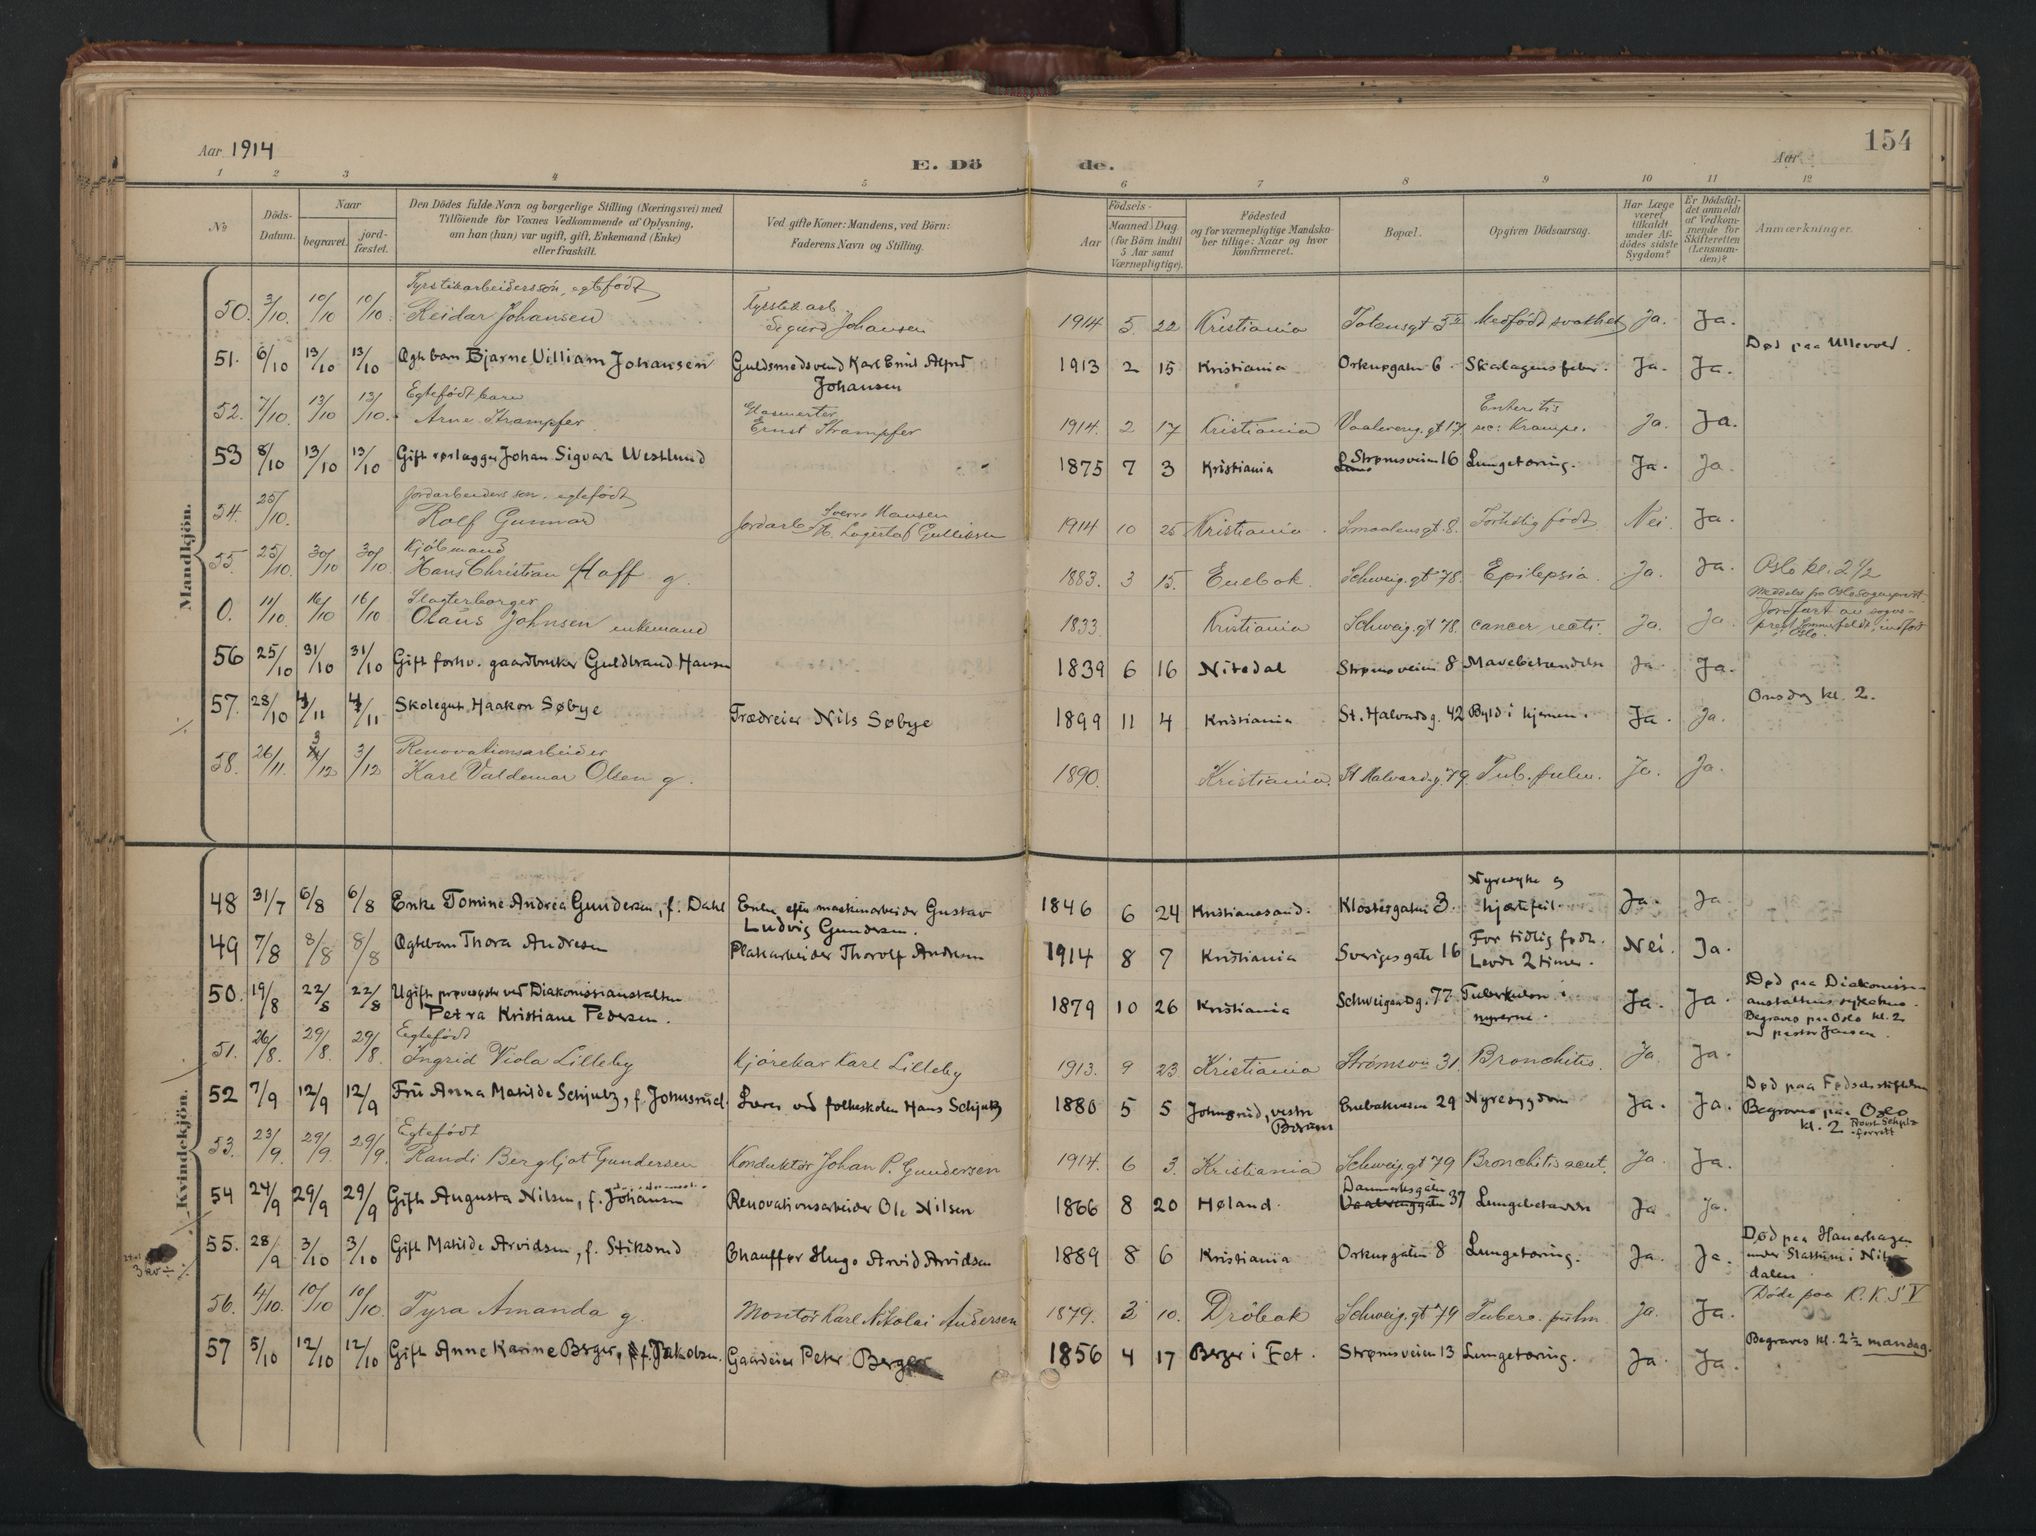 Aar 1914
E. Dö de.
Aar
154
1 2 3 4 5 6 7 8 9 10 11 12
No
Döds-Datum.
Naar
begravet.
jord-fæstet.
Den Dödes fulde Navn og borgerlige Stilling (Næringsvei) med
Tilföiende for Voxnes Vedkommende af Oplysning,
om han (hun) var ugift, gift, Enkemand (Enke)
eller fraskilt.
Ved gifte Koner: Mandens, ved Börn:
Faderens Navn og Stilling.
Födsels-
Aar
Maaned Dag
(for Börn indtil
5 Aar samt
Værnepligtige).
Födested
og for værnepligtige Mandska-
ber tillige: Naar og hvor
konfirmeret.
Bopæl.
Opgiven Dödsaarsag.
Har Læge
været
tilkaldt
under Af-
dödes sidste
Sygdom?
Er Dödsfal-
det anmeldt
af Vedkom-
mende for
Skifteretten
(Lensman-
den)?
Anmærkninger.
Mandkjön.
50. 3/10. 10/10 10/10. Fyrstikarbeidersson, egtefödt
Reidar Johansen
Fyrstikarb.
Sigurd Johansen 1914 5. 22 Kristiania Totensgt 3 II Medfödt svakhet Ja. Ja.
51. 6/10 13/10 13/10 Ægte barn Bjarne Villiam Johansen Guldsmedsvend Karl Emil Alfred
Johansen 1913 2 15 Kristiania Orknøgaten 6. Skarlagensfeber. Ja. Ja. Død paa Ullevold.
52. 7/10. 13/10 13/10. Egtefödt barn
Arne Strampfer
Glasmester
Ernst Strampfer 1914. 2 17 Kristiania Vaalereng. gt 17 Enteritis
sec: Krampe. Ja. Ja.
53 8/10 13/10 13/10 Gift rørlægger Johan Sigvart Westlund 1875 7 3 Kristiania Strømsveien 16 Lungetæring. Ja. Ja
54. 25/10. Jordarbeiders søn, egtefødt
Rolf Gunnar
Jordarb. Sverre Hansen
Lagertaf Gulliksen 1914 10 25 Kristiania Smaalensgt. 8. Fortidlig født Nei. Ja.
55. 25/10. 30/10 30/10. Kjöbmand
Hans Christian Hoff g. 1883. 3 15. Enebak Schweig. gt 78. Epilepsia. Ja. Ja. Oslo kl. 2 1/2
0. 11/10. 16/10 16/10 Slagterborger
Olaus Johnsen enkemand 1833. Kristiania Schweig. gt 78. cancer recti. Ja. Ja. Meddelt fra Oslo sogneprest.
Jordfæst av sogne-
prest Sommerfeldt, indført
i Oslo.
56 25/10 31/10 31/10 Gift forhv. gaardbruker Guldbrand Hansen 1839 6 16 Nitedal Strømsveien 8 Mavebetændelse Ja. Ja.
57. 28/10 4/11 4/11 Skolegut Haakon Søbye Trædreier Nils Søbye 1899 11 4 Kristiania St. Halvardsg. 42 Byld i hjernen. Ja. Ja. Onsdag kl. 2.
58. 26/11. 3/12 3/12 Renovationsarbeider
Karl Valdemar Olsen g. 1890. Kristiania. St Halvardsg. 79. Tub. pulm. Ja. Ja.
Kvindekjön.
48 31/7 6/8 6/8 Enke Tomine Andrea Gundersen, f. Dahl Enke efter maskinarbeider Gustav
Ludvig Gundersen. 1846 6 24 Kristianssand. Klostergaten 3. Nyresyke og
hjertefeil. Ja. Ja
49 7/8 8/8 8/8 Ægtebarn Thora Andresen Platearbeider Thorolf Andresen 1914 8 7 Kristiania Sverigesgate 16 For tidlig født.
Levde 2 timer. Nei. Ja.
50. 19/8 22/8 22/8 Ugift prøvesøster ved Diakonissianstalten
Petra Kristiane Pedersen. 1879 10 26 Kristiania Schweigaardsg. 77 Tuberkulose i
nyrerne. Ja. Ja. Død paa Diakonisse-
anstaltens sykehus.
Begraves paa Oslo kl. 2
ved pastor Jansen.
51. 26/8. 29/8. 29/8. Egtefødt
Ingrid Viola Lilleby Kjørekar Karl Lilleby 1913. 9 23. Kristiania Strømsvn 31. Bronchitis. Ja. Ja.
52 7/9 12/9 12/9 Fru Anna Matilde Schjutz, f. Johnsrud. Lærer ved folkeskolen Hans Schjutz 1880 5 5 Johnsrud, vestre
Bærum Enebakveien 29 Nyresygdom Ja. Ja. Død paa Fødselsstiftelsen
Begraves paa Oslo
kl. 2
53. 23/9. 29/9. 29/9. Egtefødt
Randi Bergljot Gundersen Konduktør Johan P. Gundersen 1914. 6 3. Kristiania Schweig. gt 79 Bronchitis acut. Ja. Ja.
54 24/9 29/9 29/9 Gift Augusta Nilsen, f. Johansen Renovationsarbeider Ole Nilsen 1866 8 20 Høland. Danmarksgaten
Vaalerenggaten 37 Lungebetændelse Ja Ja.
55. 28/9 3/10 3/10 Gift Matilde Arvidsen, f. Stiksrud Chauffør Hugo Arvid Arvidsen 1889 8 6 Kristiania Orknøgaten 8 Lungetæring. Ja. Ja. Død paa Hauerhagen
under Slattum i Nitte-
dalen.
56. 4/10. 10/10 10/10. Tyra Amanda g. Montör Karl Nikolai Andersen 1879. 3 10. Dröbak Schweig. gt 79 Tuberc. pulm. Ja. Ja. Døde paa R.K.S.V
57 5/10 12/10 12/10 Gift Anne Karine Berger, f. Jakobsen. Gaardeier Peter Berger 1856 4 17 Berger i Fet. Strømsveien 13 Lungetæring. Ja. Ja. Begraves kl. 2 1/2 mandag.